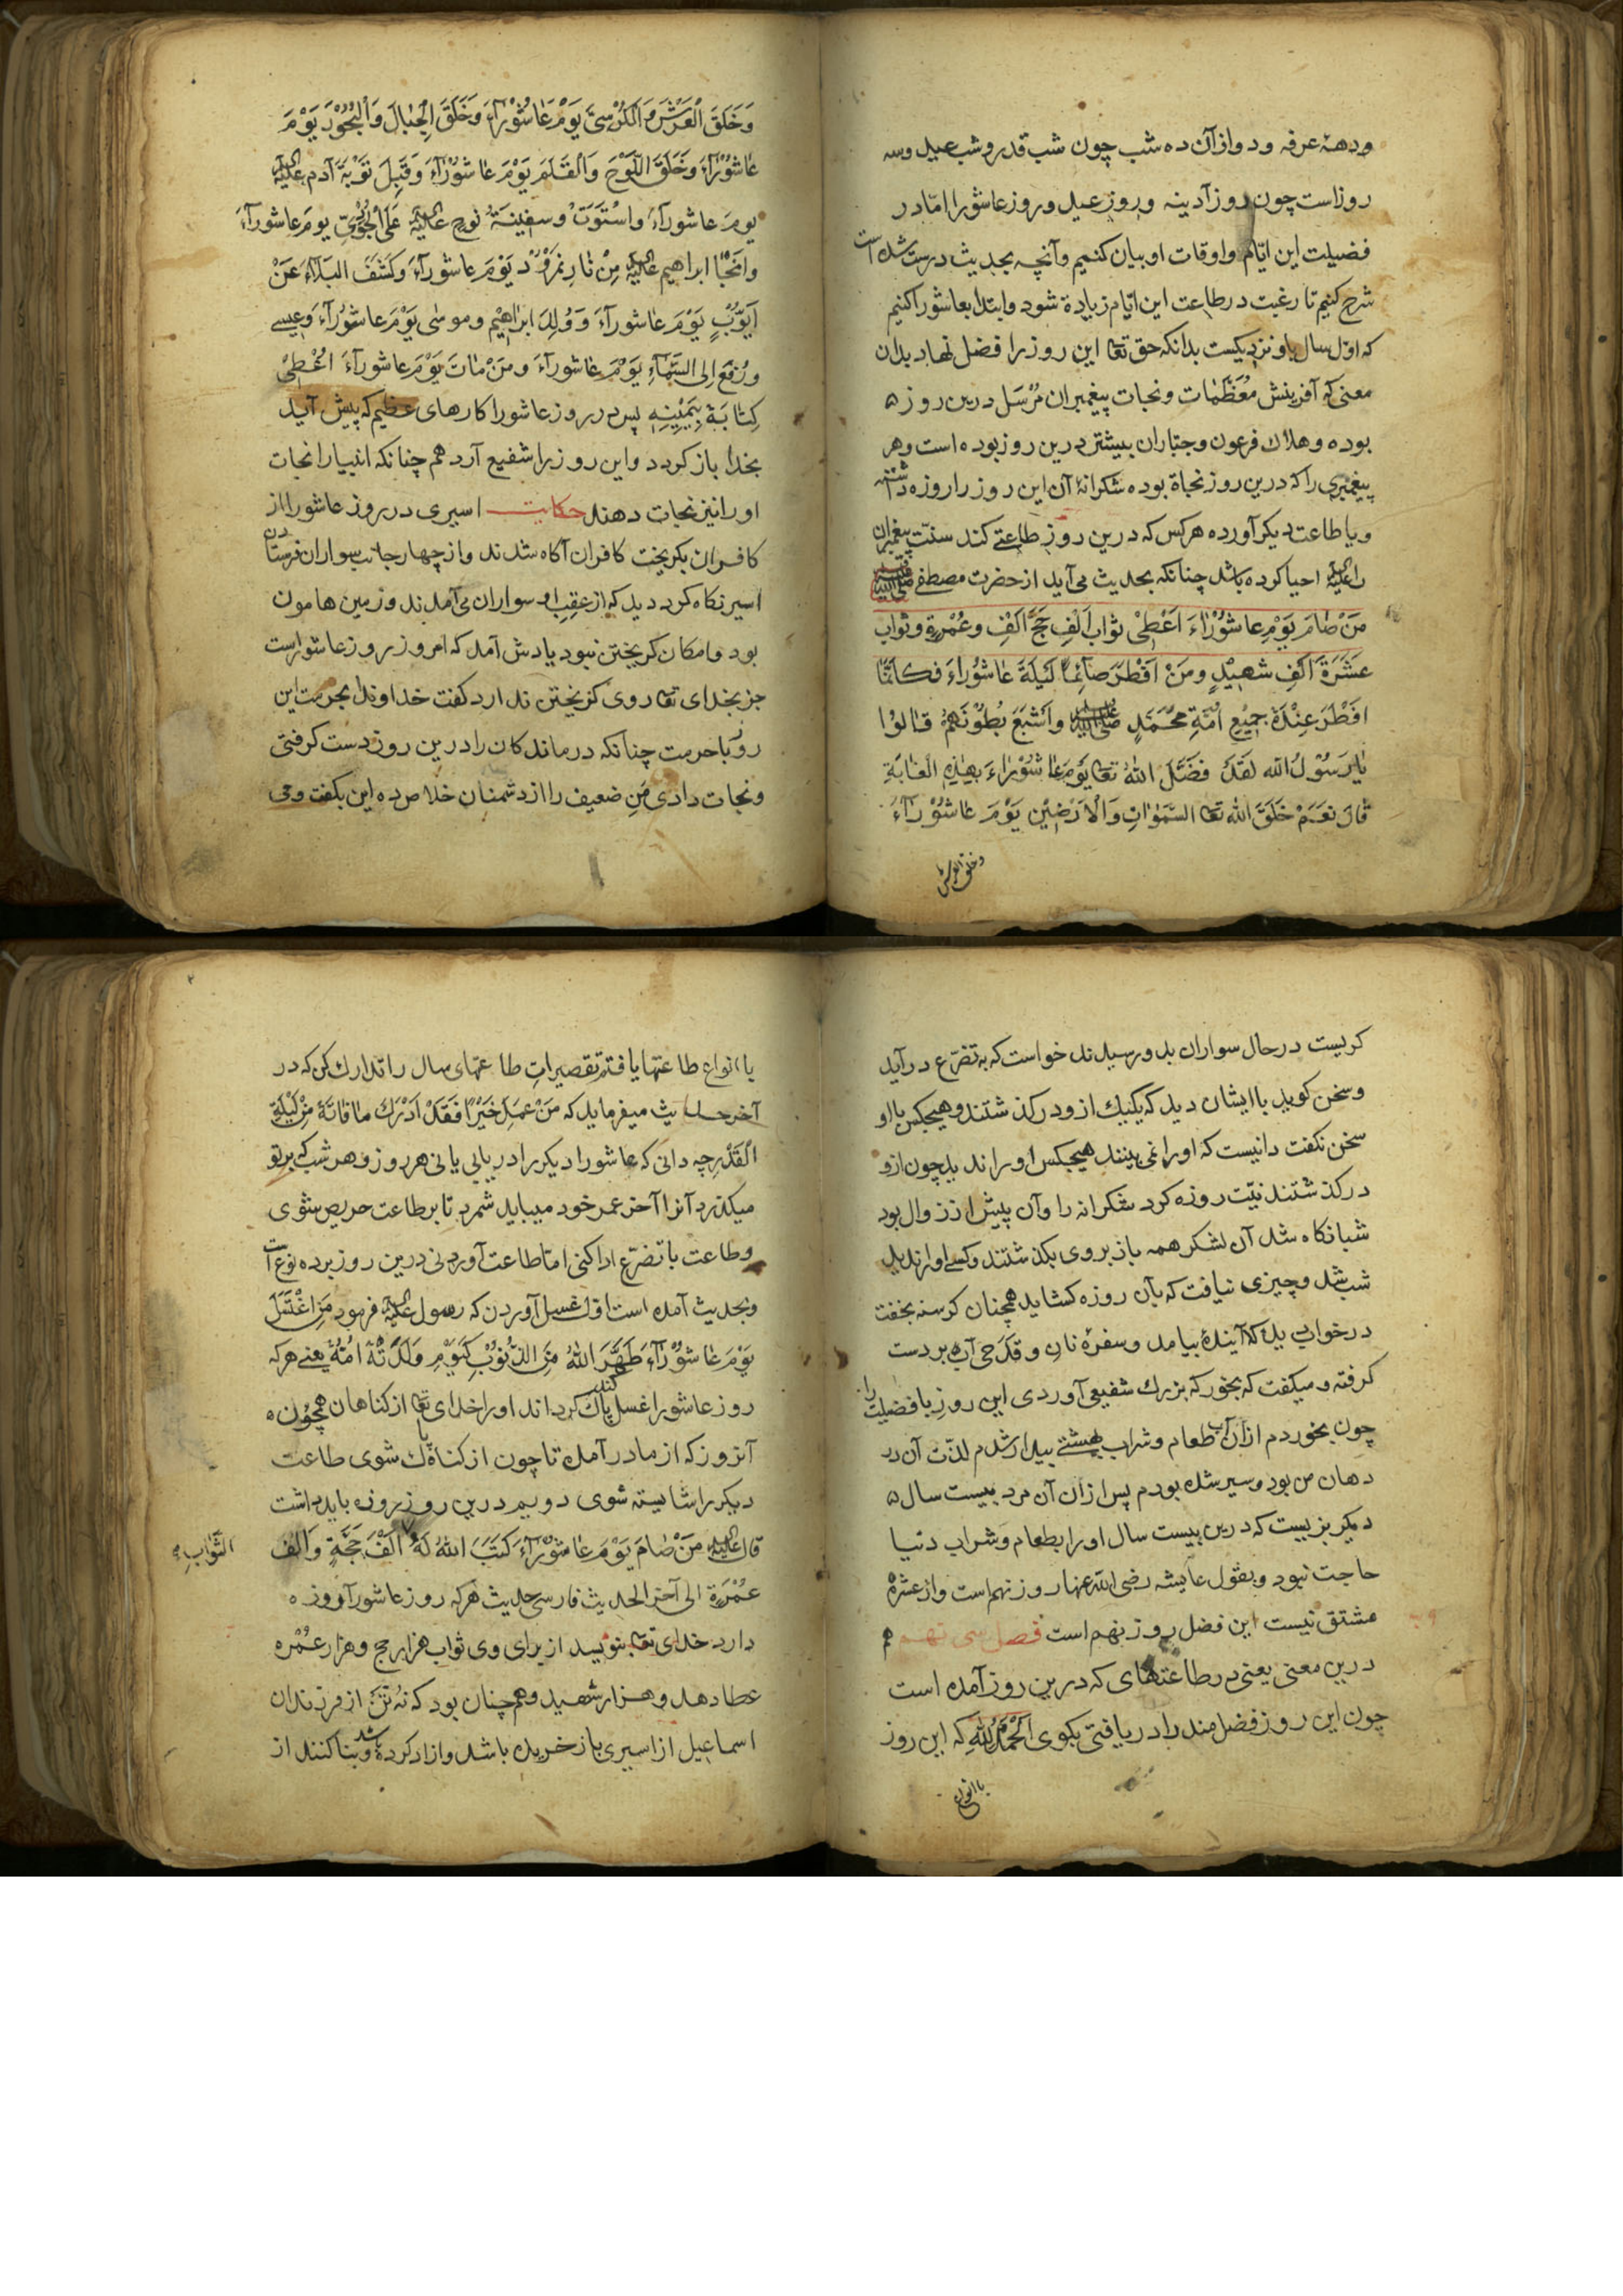 ودههٔ عرفه ودواز آن ده شب چون شب قدر و شب عید وسه
روزاست چون روز آدینه وروز عید وروز عاشورا امّا در
فضیلت این ایّام واوقات او بیان کنیم وآنچه بحدیث درست شده است
شرح کنیم تا رغبت در طاعت این ایّام زیادة شود وابتدا بعاشورا کنیم
که اوّل سال باو نزدیکست بدانکه حق تعا این روز را فضل نهاد بدان
معنی که آفرینش مُعَظَّمات ونجات پیغمبران مُرْسَل درین روز ه
بوده وهلاك فرعون وجبّاران بیشتر درین روز بوده است وهر
پیغمبری را که درین روز نجاة بوده شکرانهٔ آن این روز را روزه داشته
ویا طاعت دیکر آورده هر کس که درین روز طاعتے کند سنّت پیغمبران
را علیه احیا کرده باشد چنانکه بحدیث می آید از حضرت مصطفے ﷺ
مَنْ صٰامَ یَوْمِ عاشُوْرٰاءَ اَعْطِیْ ثواب اَلْفِ حَجِّ اَلْفِ وعُمْرةٍ وثواب
عَشَرَةَ اَلفِ شهیْدٍ ومَنْ اَفْطَرَ صآئِماً لَیْلَةَ عٰاشُوْراءَ فکانَّمٰا
اَفْطَرَ عِنْدَهٗ جمیْعِ اُمَّةِ محَمَّدٍ ﷺ واَشْبَعَ بُطُوْنَهُمْ قٰالوُا
یٰا رَسُوْلُ الله لقَدْ فضَّلَ اللهُ تعا یَوْمَ عٰاشُوْرٰاءَ بِهٰذِهِ الْغٰایَةِ
قٰالَ نعَمْ خَلَقَ الله تعا السَّمٰوٰاتِ وَالْاَرَضِیْن یَوْمَ عٰاشُوْرٰآءَ
وخلق العرش
وَخَلَقَ الْعَرْشَ وَالْکُرْسِیَّ یَوْمَ عٰاشُوْرٰآءَ وَخَلَقَ الْجِبٰالَ وَالْبُحُوْرَ یَوْمَ
عٰاشُوْرٰآءَ وَخَلَقَ اللَّوْحَ وَالْقَلَمَ یَوْمَ عٰاشُوْرٰآءَ وَقَبِلَ تَوْبَةَ آدم علیه
یومَ عاشورآءَ واسْتَوَتْ وسفینَةُ نوحٍ علیه عَلَی الْجُوْدِیِّ یومَ عاشورآءَ
وانَجْا ابراهیم علیه مِنْ نٰارِ نمرُوْد یَوْمَ عاشورآءَ وکَشَفَ البَلآءَ عَنْ
اَیّوُبٍ یَوْمَ عاشورآءَ وَوُلِدَ ابراهیْم وموسٰی یَوْمَ عاشُوْرآءَ وعیسے
ورُفِعَ اِلَی السَّمآءِ یَوْمَ عٰاشورآءَ ومَنْ مٰاتَ یَوْمَ عاشورآءَ اعُطِیَ
کِتٰابَهٗ بِیَمیْنِهِ پس در روز عاشورا کارهای عظیم که پیش آید
بخدا باز کردد واین روز را شفیع آرد هم چنانکه انبیا را نجات
اورا نیز نجات دهند حکایت اسیری در روز عاشورا از
کافران بکریخت کافران آکاه شدند واز چهار جانب سواران فرستادن
اسیر نکاه کرد دید که از عقبِ او سواران می آمدند وزمین هامون
بود وامکان کریختن نبود یادش آمد که امروز روز عاشوراست
جز بخدای تعا روی کریختن ندارد کفت خداوندا بحرمت این
روز باحرمت چنانکه درماندکان را درین روز دست کرفتی
ونجات دادی منِ ضعیف را از دشمنان خلاص ده این بکفت ومی
کریست در حال سواران بدو رسیدند خواست که به تضرّع در آید
وسخن کوید باایشان دید که یکیك ازو در کذشتند وهیچکس بااو
سخن نکفت دانیست که اورا نمی بینند هیچکس اورا ندید چون ازو
در کذشتند نیّت روزه کرد شکرانه را وآن پیش از زوال بود
شبانکاه شد آن لشکر همه باز بروی بکذشتند وکسے اورا ندید
شب شد وچیزی نیافت که بآن روزه کشاید همچنان کرسنه بخفت
در خواب بدید که آیندهٔ بیامد وسفرهٔ نان وقدحی آب بردست
کرفته ومیکفت که بخور که بزرك شفیعی آوردی این روزِ با فضیلت را
چون بخوردم ازان آب طعام وشراب بهشتے بیدار شدم لذّت آن در
دهان من بود وسیر شده بودم پس ازان آن مرد بیست سال ه
دیکر بزیست که درین بیست سال اورا بطعام وشراب دنیا
حاجت نبود وبقول عایشه رضی الله عنها روز نهم است واز عشره
مشتق نیست این فضل روز نهم است فصل سی نهم هم
درین معنی یعنی در طاعتهای که درین روز آمده است
چون این روز فضل مند را در یافتی بکوی اَلْحَمْدُ لِلّٰهِ که این روز
باانواع
باانواع طاعتها یافتم تقصیراتِ طاعتهای سال را تدارك کن که در
آخر حدیث میفرماید که مَنْ عَمِلَ خَیْرًا فَقَدْ اَدْرَكَ مٰا فٰاتَهٗ مِنْ لَیْلَةِ
الْقَدْر چه دانی که عاشورا دیکر را در یابی یا نی هر روز وهر شب که بر تو
میکذرد آنرا آخر عمر خود میباید شمرد تا بر طاعت حریص شوی
وطاعت با تضرّع ادا کنی امّا طاعت آوردنی درین روز برده نوع است
وبحدیث آمده است اوّل غسل آوردن که رسول علیه فرمود مَنِ اغْتَسَلَ
یَوْمَ عٰاشُوْرٰآءَ طَهَّرَ اللهُ مِنَ الذُّنوُبْ کَیَوْمِ وَلَدَتْهُ اُمُّهُ یعنے هر که
روز عاشورا غسل کند پاك کرداند اورا خدای تعا از کناهان همچون ه
آنروز که از مادر آمده تا چون از کناه پاك شوی طاعت
دیکر را شایسته شوی دویم درین روز روزه باید داشت
قال علیه مَنْ صٰامَ یَوْمَ عٰاشُوْرٰآءَ کَتَبَ اللهُ لَهُ اَلْفَ حَجَّةٍ وَاَلْفَ
الثَّوٰابِ
عُمْرَةٍ الی آخر الحدیث فارسی حدیث هر که روز عاشورآ روزه
دارد خدای تعا بنویسد از برای وی ثواب هزار حج وهزار عُمْره
عطا دهد وهزار شهید وهم چنان بود که نُه تَنْ از فرزندان
اسماعیل از اسیری باز خریده باشد وازاد کرده باشد وبنا کنند از